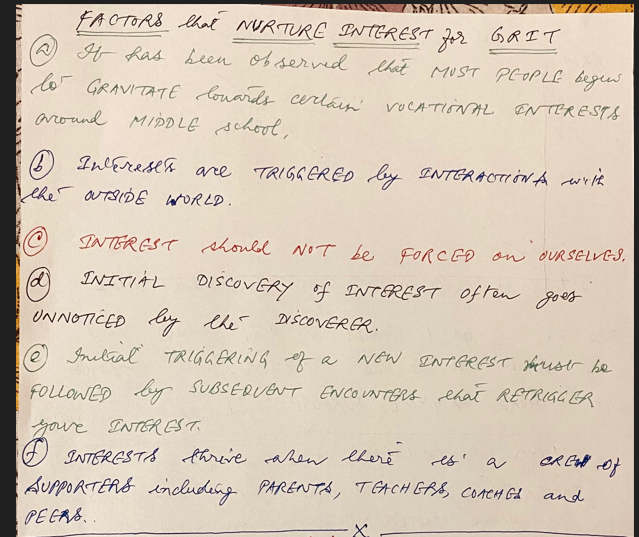 FACTORS that NURTURE INTEREST for GRIT
(a) It has been observed that MOST PEOPLE begin
to GRAVITATE towards certain VOCATIONAL INTERESTS
around MIDDLE school.
(b) Interests are TRIGGERED by INTERACTIONS with
the OUTSIDE WORLD.
(c) INTEREST should NOT be FORCED on OURSELVES.
(d) INITIAL DISCOVERY of INTEREST often goes
UNNOTICED by the DISCOVERER.
(e) Initial TRIGGERING of a NEW INTEREST must be
FOLLOWED by SUBSEQUENT ENCOUNTERS that RETRIGGER
your INTEREST.
(f) INTERESTS thrive when there is a CREW of
SUPPORTERS including PARENTS, TEACHERS, COACHES and
PEERS..
X